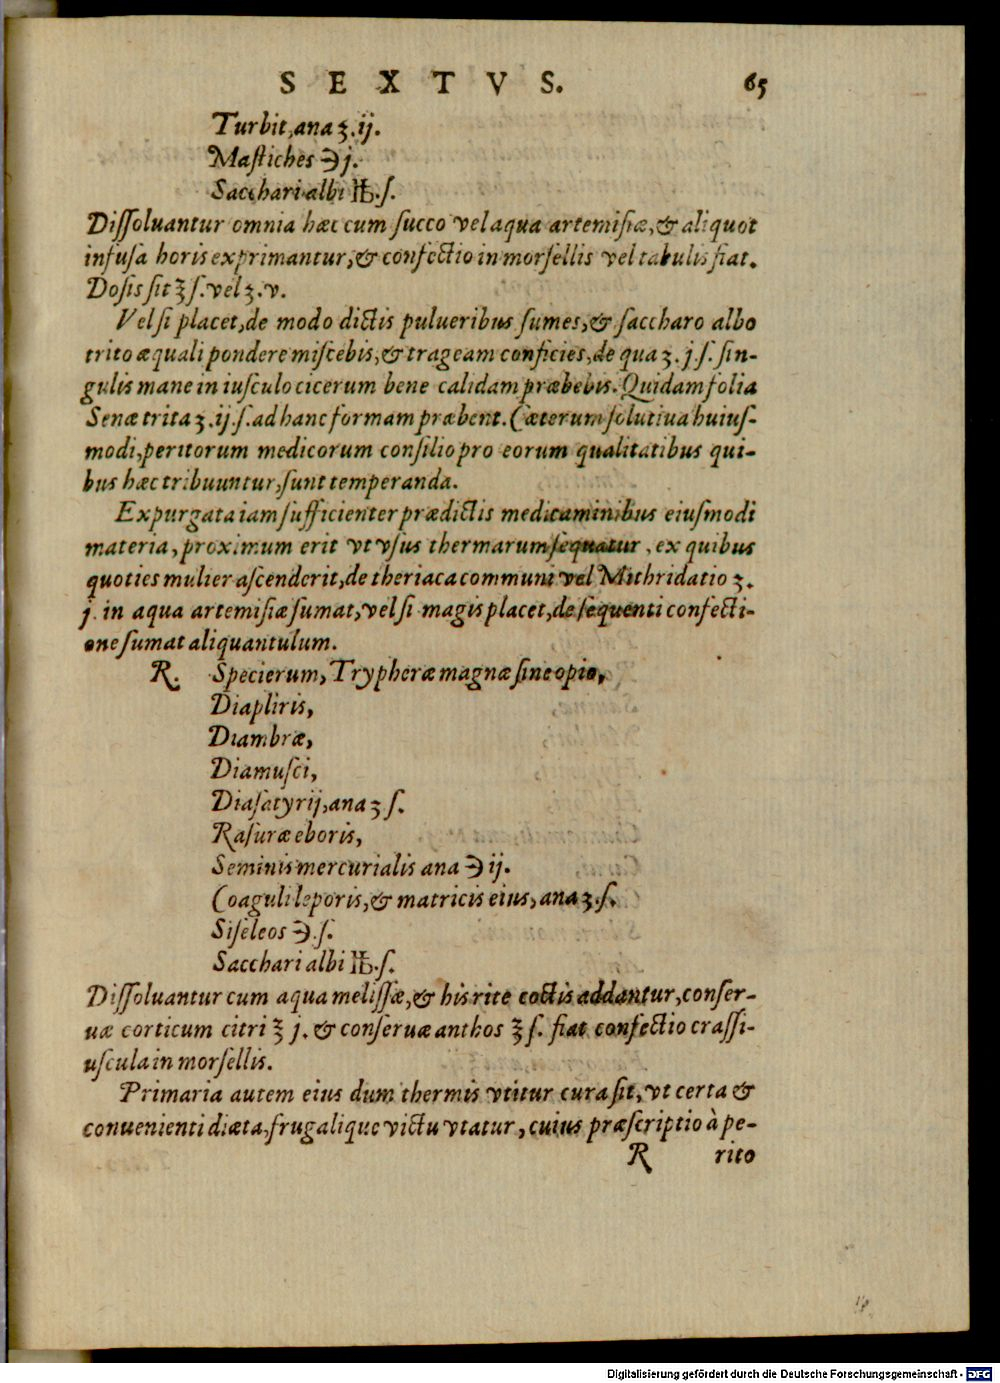 SEXTVS. 65
Turbit, ana ʒ. ij.
Mastiches ℈ j.
Sacchari albi ℔. ſ.
Diſſoluantur omnia hæc cum ſucco vel aqua artemiſiæ, & aliquot
infuſa horis exprimantur, & confectio in morſellis vel tabulis fiat.
Doſis ſit ℥ ſ. vel ʒ. v.
Vel ſi placet, de modo dictis pulueribus ſumes, & ſaccharo albo
trito æquali pondere miſcebis, & trageam conficies, de qua ʒ. j. ſ. ſin-
gulis mane in iuſculo cicerum bene calidam præbebis. Quidam folia
Senæ trita ʒ. ij. ſ. ad hanc formam præbent. Cæterum ſolutiua huiuſ-
modi, peritorum medicorum conſilio pro eorum qualitatibus qui-
bus hæc tribuuntur, ſunt temperanda.
Expurgata iam ſufficienter prædictis medicaminibus eiuſmodi
materia, proximum erit vt vſus thermarum ſequatur, ex quibus
quoties mulier aſcenderit, de theriaca communi vel Mithridatio ʒ.
j. in aqua artemiſiæ ſumat, vel ſi magis placet, de ſequenti confecti-
one ſumat aliquantulum.
R. Specierum, Trypheræ magnæ ſine opio,
Diapliris,
Diambræ,
Diamuſci,
Diaſatyrij, ana ʒ ſ.
Raſuræ eboris,
Seminis mercurialis ana ℈ ij.
Coaguli leporis, & matricis eius, ana ʒ. ſ.
Siſeleos ℈. ſ.
Sacchari albi ℔. ſ.
Diſſoluantur cum aqua meliſſæ, & his rite coctis addantur, conſer-
uæ corticum citri ℥ j. & conſeruæ anthos ℥ ſ. fiat confectio craſſi-
uſcula in morſellis.
Primaria autem eius dum thermis vtitur cura ſit, vt certa &
conuenienti diæta, frugalique victu vtatur, cuius præſcriptio à pe-
R rito
Digitalisierung gefördert durch die Deutsche Forschungsgemeinschaft - DFG